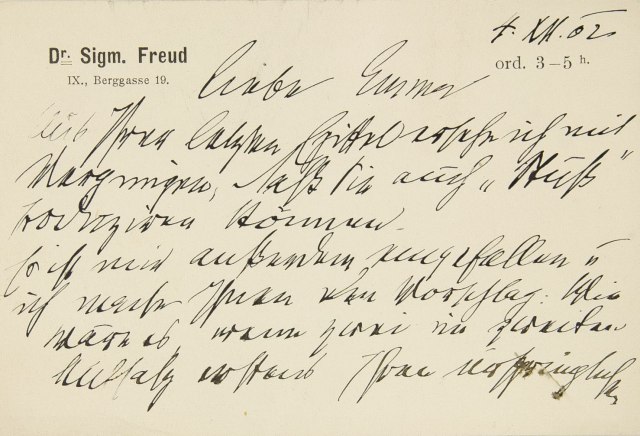 4. XII. 02
Dr. Sigm. Freud
IX., Berggasse 19.
ord. 3–5 h.
Liebe Emma
Aus Ihren letzten ersehe ich mit
Vergnügen, daß Sie auch „Muß“
produziren können.
Es ist mir außerdem eingefallen u
ich mache Ihnen den Vorschlag: Wie
wäre es, wenn Sie im zweiten
Aufsatz erstens Ihren ursprünglichen